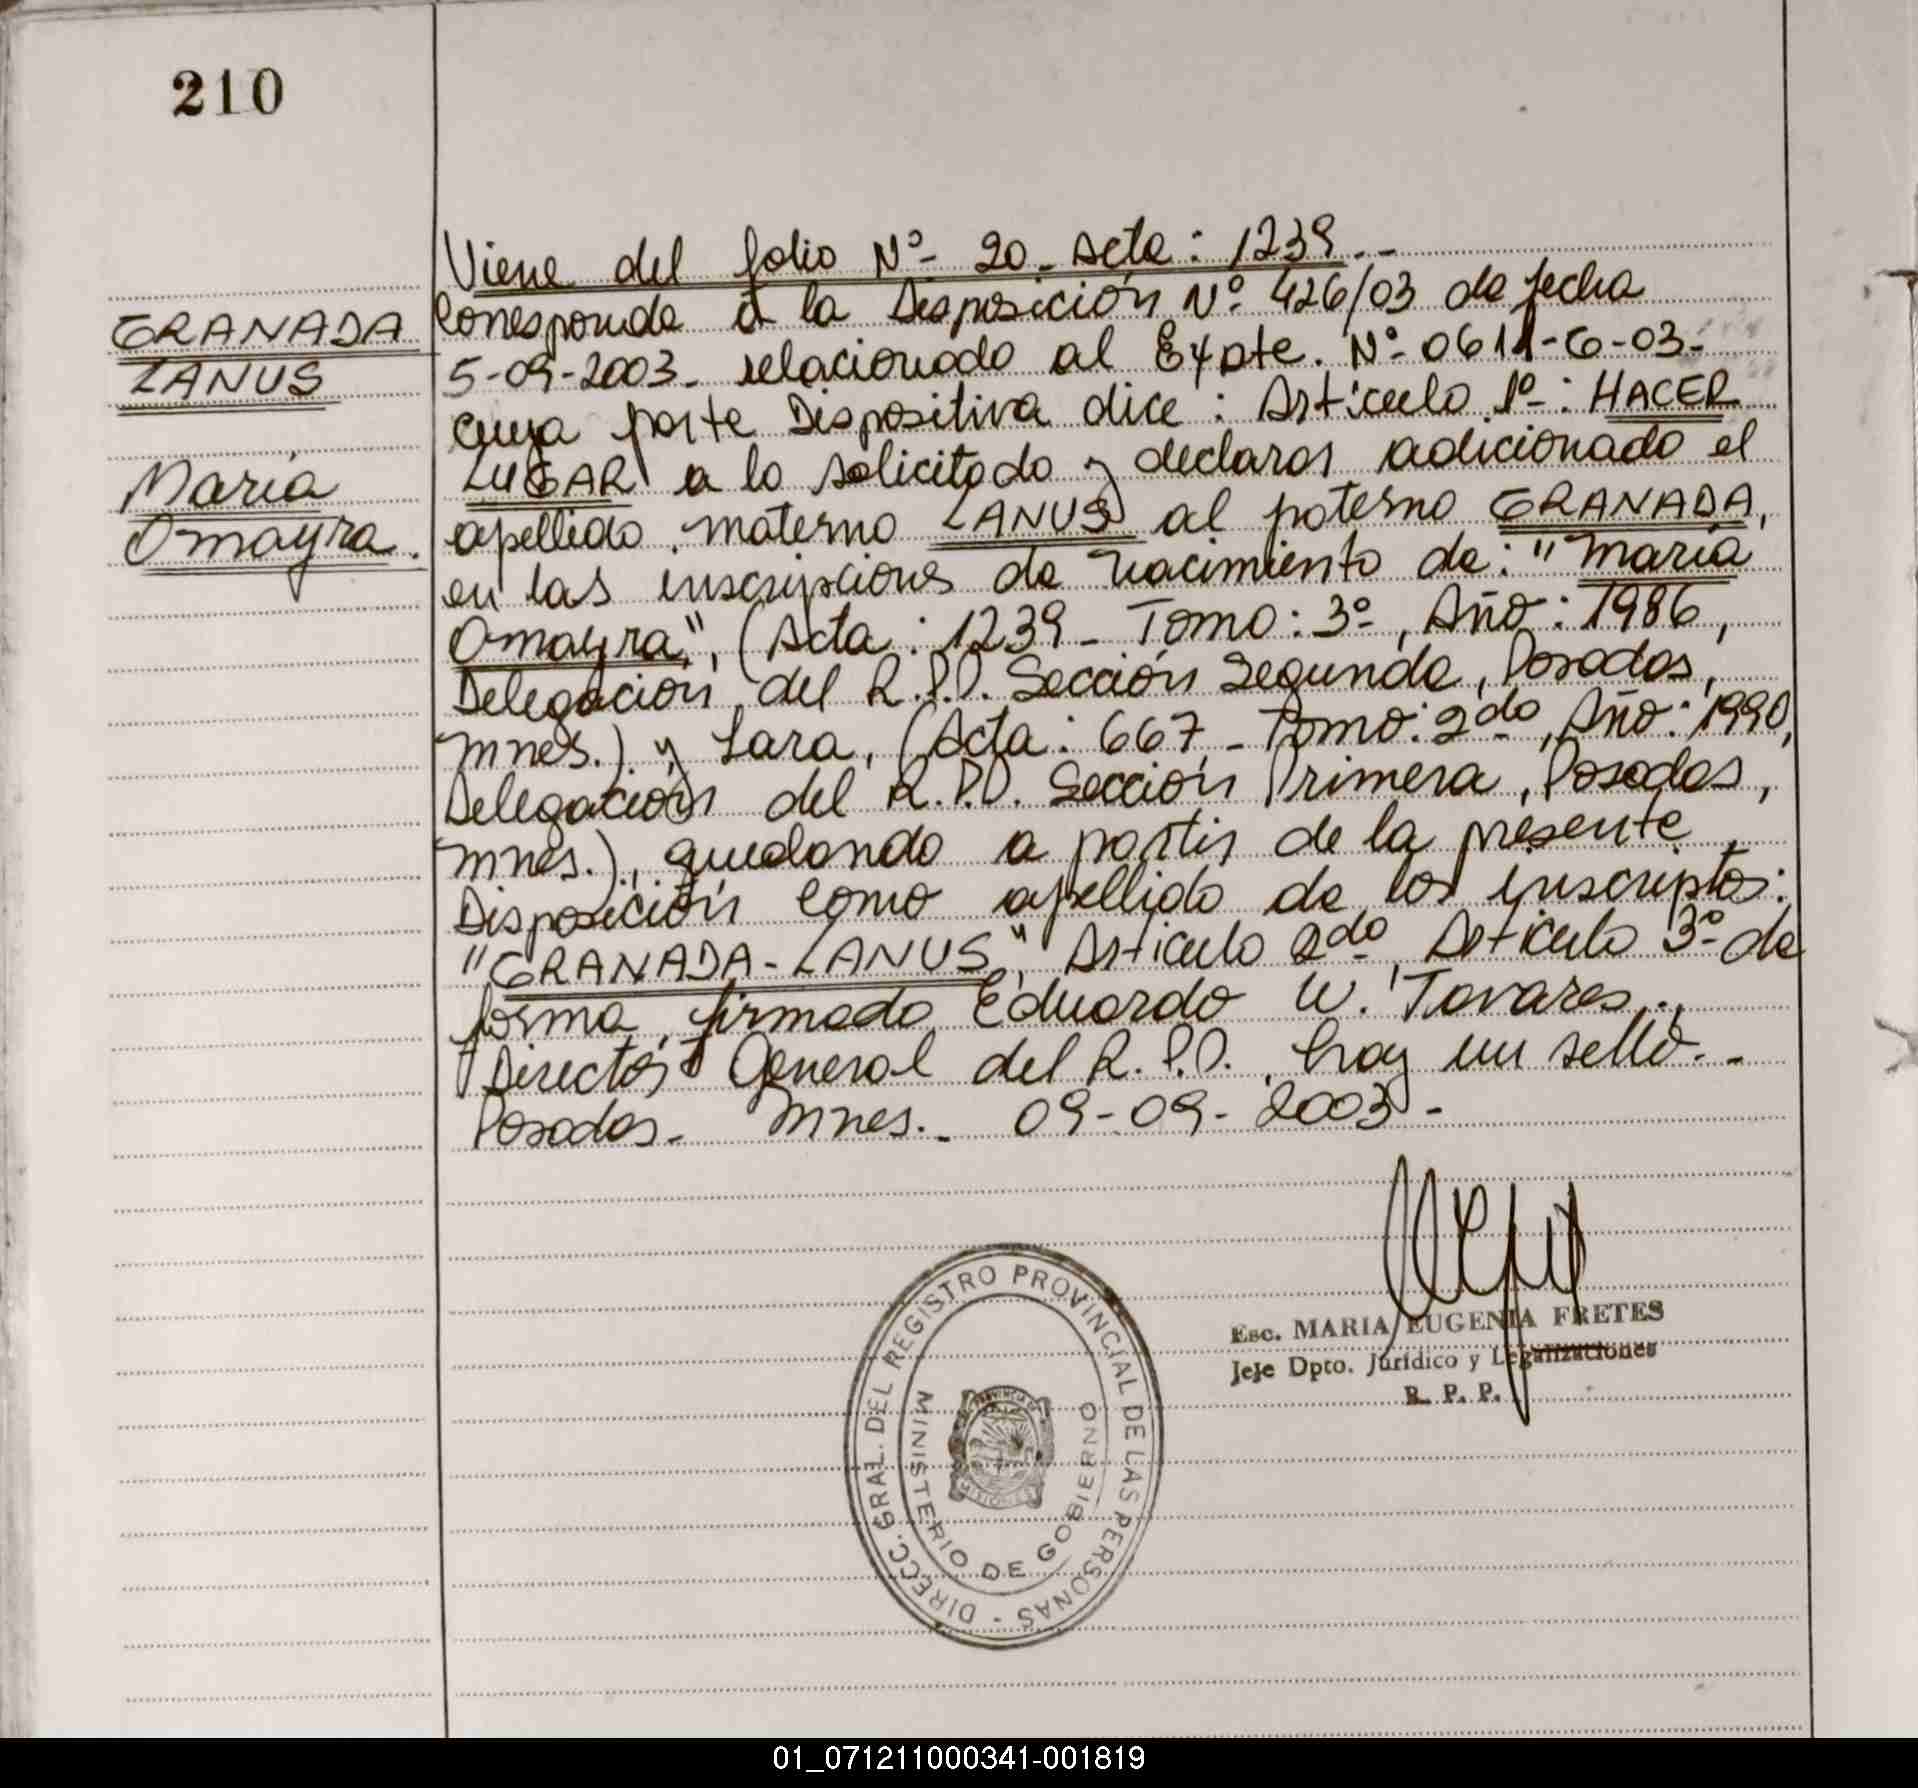 210
GRANADA
LANUS
María
Omayra.
Viene del folio Nº- 20_ Acta: 1239.-
Corresponde a la Disposición Nº 426/03 de fecha
5-09-2003_ relacionado al Expte. Nº- 0611-G-03-
cuya parte Dispositiva dice: Artículo 1º-: HACER
LUGAR a lo solicitado y declarar adicionado el
apellido materno LANUS al paterno GRANADA,
en las inscripciones de nacimiento de: "María
Omayra", (Acta: 1239_ Tomo: 3º, Año: 1986,
Delegación del R.P.P. Sección Segunda, Posadas,
Mnes.) y Sara, (Acta: 667_ Tomo: 2do, Año: 1990,
Delegación del R.P.P. Sección Primera, Posadas,
Mnes.), quedando a partir de la presente
Disposición como apellido de los inscriptos:
"GRANADA-LANUS", Artículo 2do, Artículo 3º- de
forma, firmado Eduardo W. Tavares.,
Director General del R.P.P., hay un sello.-
Posadas_ Mnes._ 09-09-2003-
Esc. MARIA EUGENIA FRETES
Jefe Dpto. Jurídico y Legalizaciones
R. P. P.
DIRECC. GRAL. DEL REGISTRO PROVINCIAL DE LAS PERSONAS -
MINISTERIO DE GOBIERNO
PROVINCIA DE
MISIONES
01_071211000341-001819